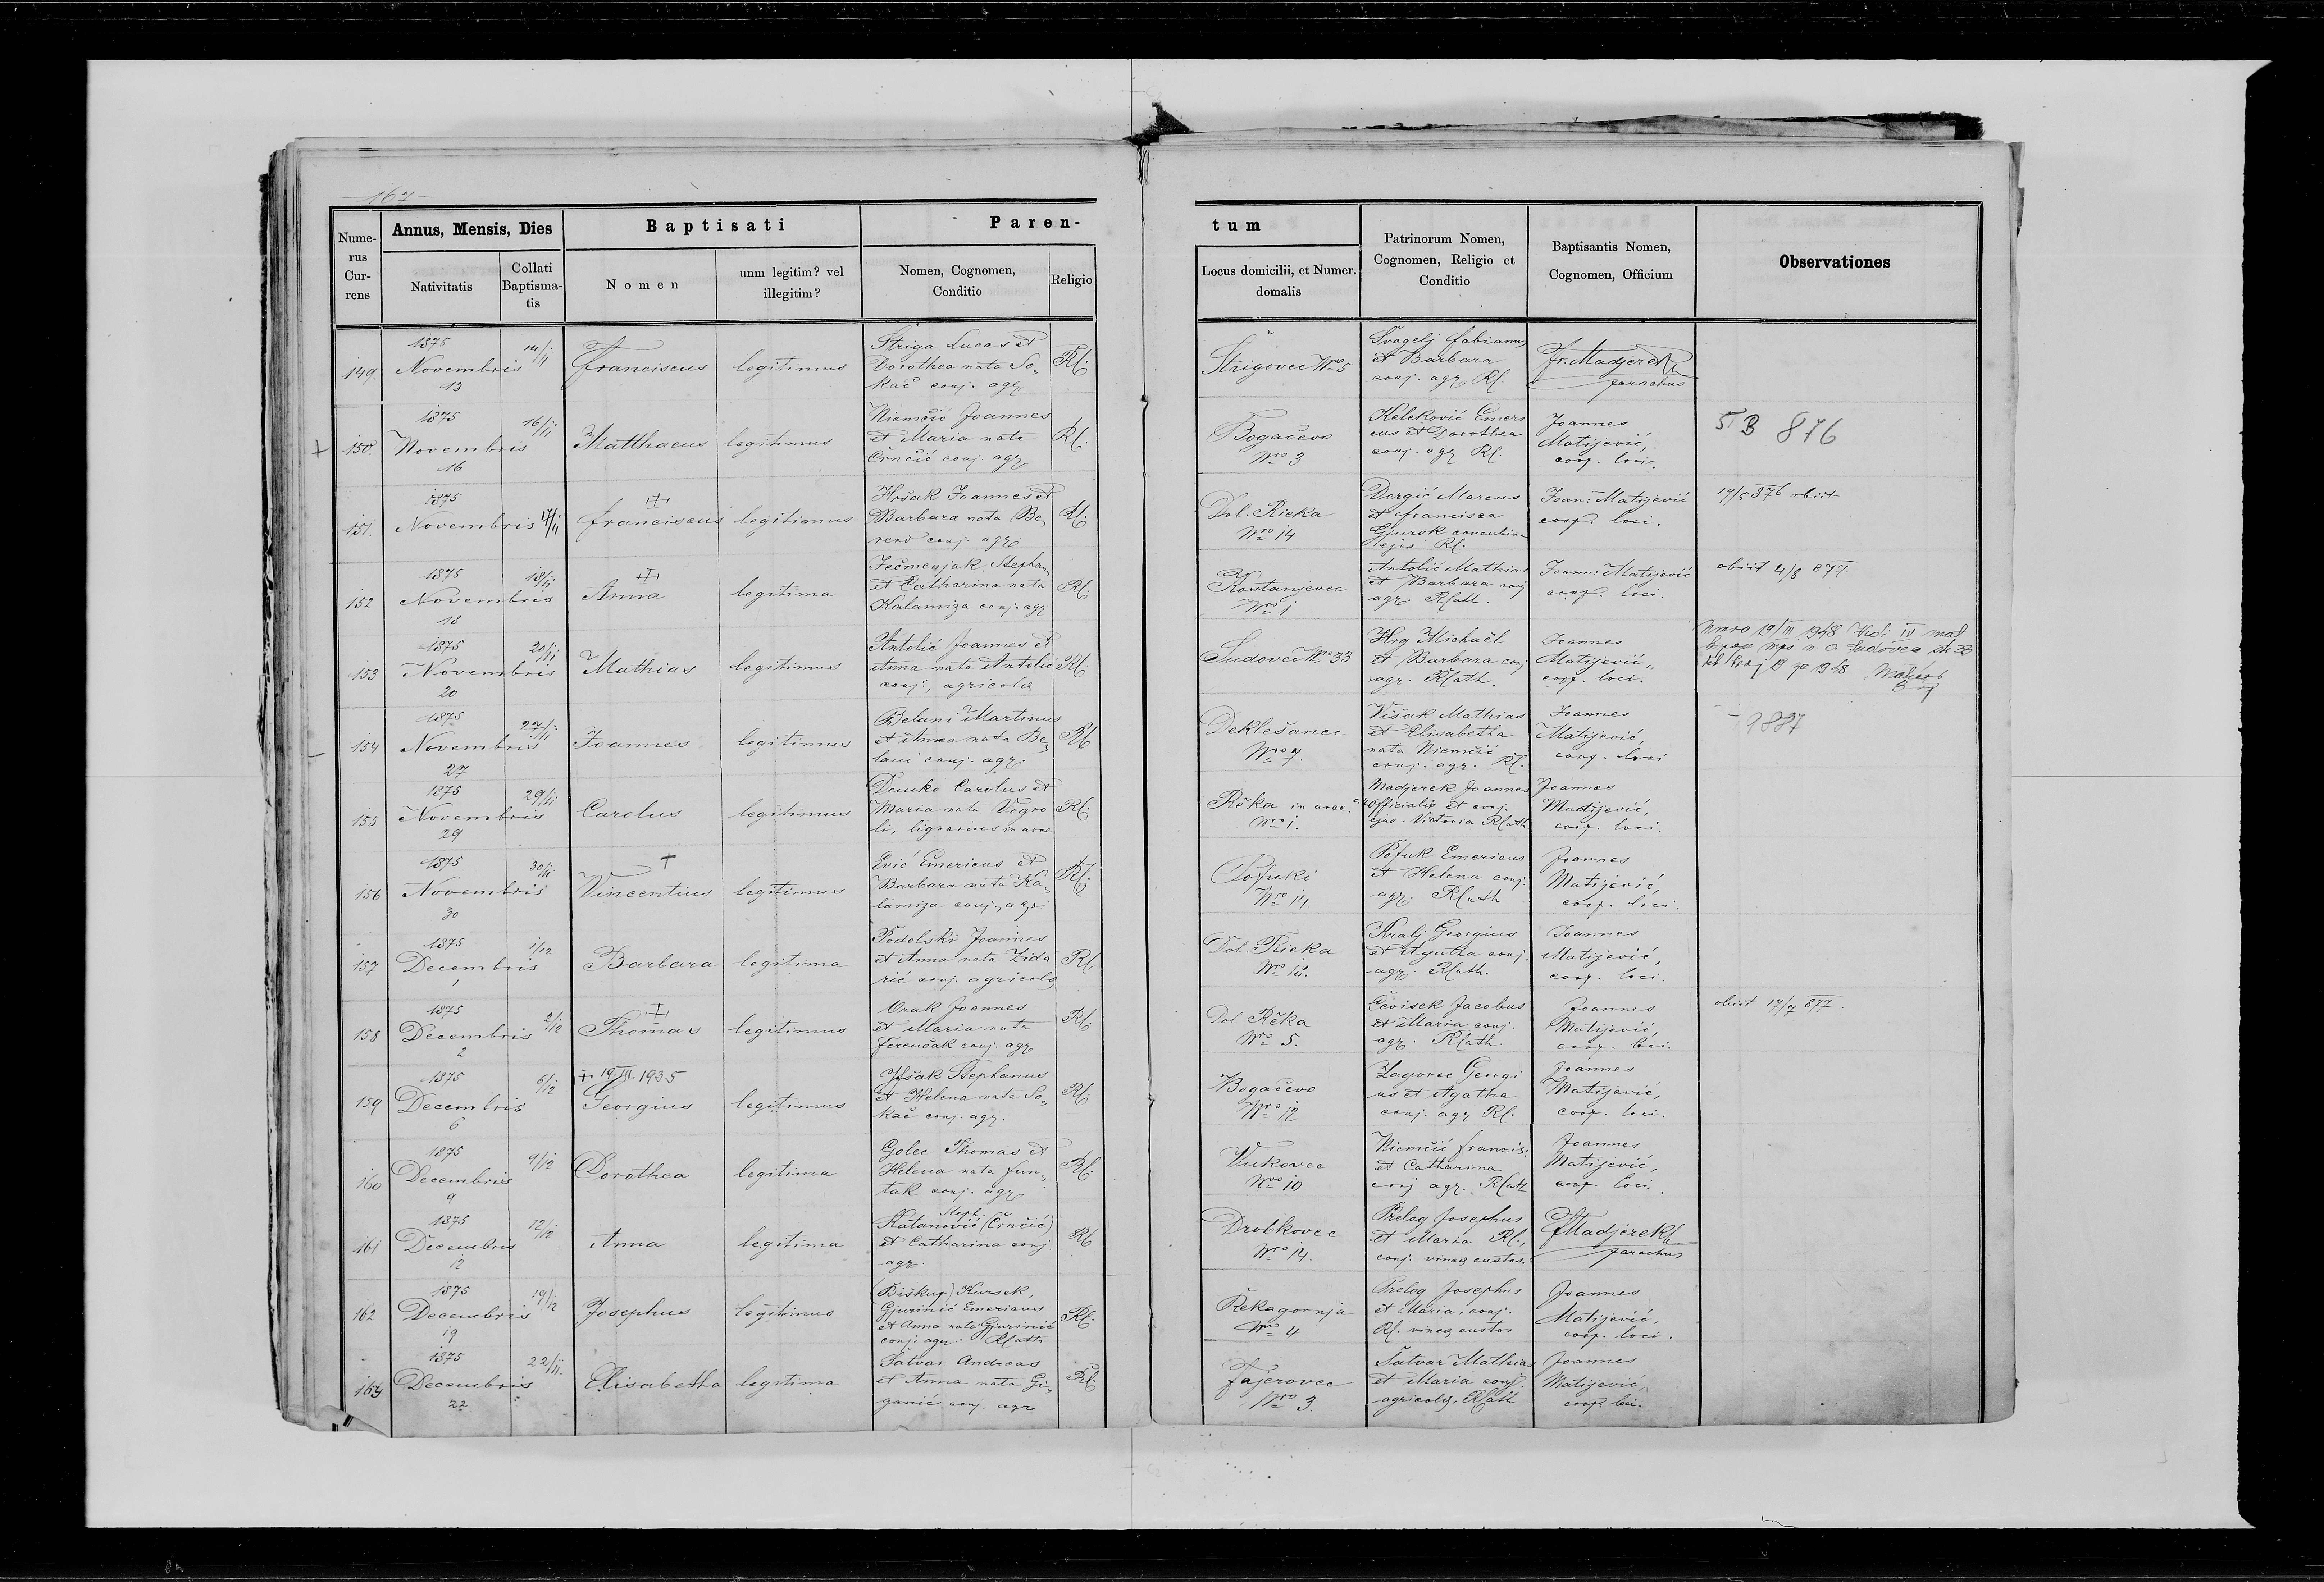 167
Nume-
rus
Cur-
rens
Annus, Mensis, Dies
Nativitatis
Collati
Baptisma-
tis
Baptisati
Nomen
unm legitim? vel
illegitim?
Paren-
Nomen, Cognomen,
Conditio
Religio
tum
Locus domicilii, et Numer.
domalis
Patrinorum Nomen,
Cognomen, Religio et
Conditio
Baptisantis Nomen,
Cognomen, Officium
Observationes
149.
1875
Novembris
13
14/11
Franciscus
legitimus
Štriga Lucas et
Dorothea nata So-
kač conj. agr.
Rf.
Štrigovec Nro 5
Švagelj Fabianus
et Barbara
conj. agr. Rf.
Fr. Madjerek
parochus
150.
1875
Novembris
16
16/11
Matthaeus
legitimus
Niemčić Joannes
et Maria nata
Črnčić conj. agr.
Rf.
Bogačevo
Nro 3
Keleković Emeri
cus et Dorothea
conj. agr. Rf.
Joannes
Matijević,
coop. loci.
876
151.
1875
Novembris
17/11
Franciscus
legitimus
Hršak Joannes et
Barbara nata Be-
rend conj. agr.
Rf.
Dol. Rieka
Nro 14
Dergić Marcus
et Francisca
Gjurok concubina
ejus Rf.
Joan: Matijević
coop. loci.
19/5 876 obiit
152
1875
Novembris
18
18/11
Anna
legitima
Ječmenjak Stephan
et Catharina nata
Kalamiza conj. agr.
Rf.
Kostanjevec
Nro 1
Antolić Mathias
et Barbara conj
agr. Rcath.
Joann: Matijević
coop. loci.
obiit 4/8 877
153
1875
Novembris
20
20/11
Mathias
legitimus
Antolić Joannes et
Anna nata Antolić
conj., agricolae
Rf.
Ludovec Nro 33
Hrg Michaël
et Barbara conj
agr. Rcath.
Joannes
Matijević,
coop. loci.
19/III 1948
154
1875
Novembris
27
27/11
Joannes
legitimus
Belani Martinus
et Anna nata Be-
lani conj. agr.
Rf.
Deklešanec
Nro 7.
Višak Mathias
et Elisabetha
nata Niemčić
conj. agr. Rf.
Joannes
Matijević
coop. loci
155
1875
Novembris
29
29/11
Carolus
legitimus
Demko Carolus et
Maria nata Vogro
li, lignarius in arce
Rf.
Rěka in arce.
Nro 1.
Madjerek Joannes
officialis et conj.
ejus Victoria Rcath
Joannes
Matijević,
coop. loci.
156
1875
Novembris
30
30/11
Vincentius
legitimus
Ević Emericus et
Barbara nata Ka-
lamiza conj., agr.
Rf.
Pofuki
Nro 14.
Pofuk Emericus
et Helena conj.
agr. Rcath
Joannes
Matijević,
coop. loci.
157
1875
Decembris
1
1/12
Barbara
legitima
Podolski Joannes
et Anna nata Zida
rić conj. agricolae
Rf.
Dol. Rieka
Nro 18.
Kralj Georgius
et Agatha conj.
agr. Rcath.
Joannes
Matijević,
coop. loci.
158
1875
Decembris
2
2/12
Thomas
legitimus
Orak Joannes
et Maria nata
Ferenčak conj. agr.
Rf.
Dol Rěka
Nro 5.
Čevisek Jacobus
et Maria conj.
agr. Rcath.
Joannes
Matijević,
coop. loci.
obiit 17/7 877.
159
1875
Decembris
6
6/12
+ 19.III.1935
Georgius
legitimus
Jfšak Stephanus
et Helena nata So-
kač conj. agr.
Rf.
Bogačevo
Nro 12
Zagorec Georgi
us et Agatha
conj. agr Rf.
Joannes
Matijević,
coop. loci.
160
1875
Decembris
9
9/12
Dorothea
legitima
Golec Thomas et
Helena nata Fun-
tak conj. agr.
Rf.
Vukovec
Nro 10
Niemčić Francis.
et Catharina
conj agr. Rcath
Joannes
Matijević,
coop. loci.
161
1875
Decembris
12
12/12
Anna
legitima
Steph.
Katanović (Črnčić)
et Catharina conj.
agr.
Rf.
Drobkovec
Nro 14.
Preleg Josephus
et Maria Rf.,
conj. vineae custos.
FMadjerek
parochus
162
1875
Decembris
19
19/12
Josephus
legitimus
(Biškup) Kursek,
Gjurinić Emericus
et Anna nata Gjurinić
conj. agr. Rcath
Rf.
Rekagornja
Nro 4
Preleg Josephus
et Maria, conj.
Rf. vineae custos
Joannes
Matijević,
coop. loci.
163
1875
Decembris
22
22/11.
Elisabetha
legitima
Šatvar Andreas
et Anna nata Gi-
ganić conj. agr
Rf.
Fajerovec
Nro 3.
Šatvar Mathias
et Maria conj.
agricolae, Rcath
Joannes
Matijević,
coop. loci.